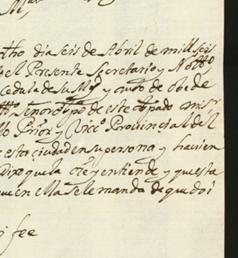 dho dia seis de Abril de mill seis
el Presente Secretario y Notto
cedula de su Mgd y auto de obede
señor obpo de este obpado mis
Prior y Vicco Provincial del
esta ciudad en su persona y havien
Dixo que la oye y entiende y que esta
que en ella se le manda de que doi
fee